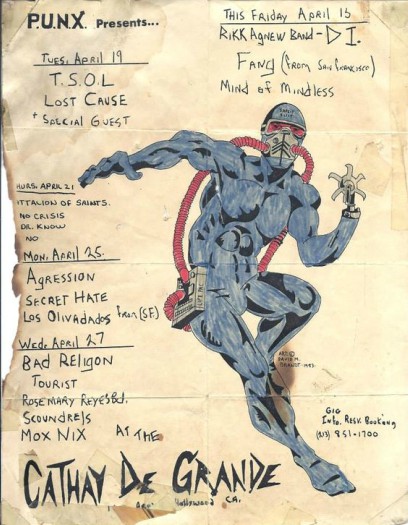 P.U.N.X. Presents...
THIS FRIDAY APRIL 15
RIKK AGNEW BAND - D I.
FANG (FROM SAN FRANCISCO)
MIND OF MINDLESS
TUES, APRIL 19
T.S.O.L
LOST CAUSE
+ SPECIAL GUEST
HURS, APRIL 21
ATTALION OF SAINTS.
NO CRISIS
DR. KNOW
NO
MON, APRIL 25.
AGRESSION
SECRET HATE
LOS OLIVADADOS from (SF)
WED, APRIL 27
BAD RELIGION
TOURIST
ROSEMARY REYES Bd.
SCOUNDRELS
MOX NIX
AT THE
CATHAY DE GRANDE
Hollywood CA.
ART ©
DAVID M.
1983.
GIG
Info. Resv. Booking
(213) 851-1700